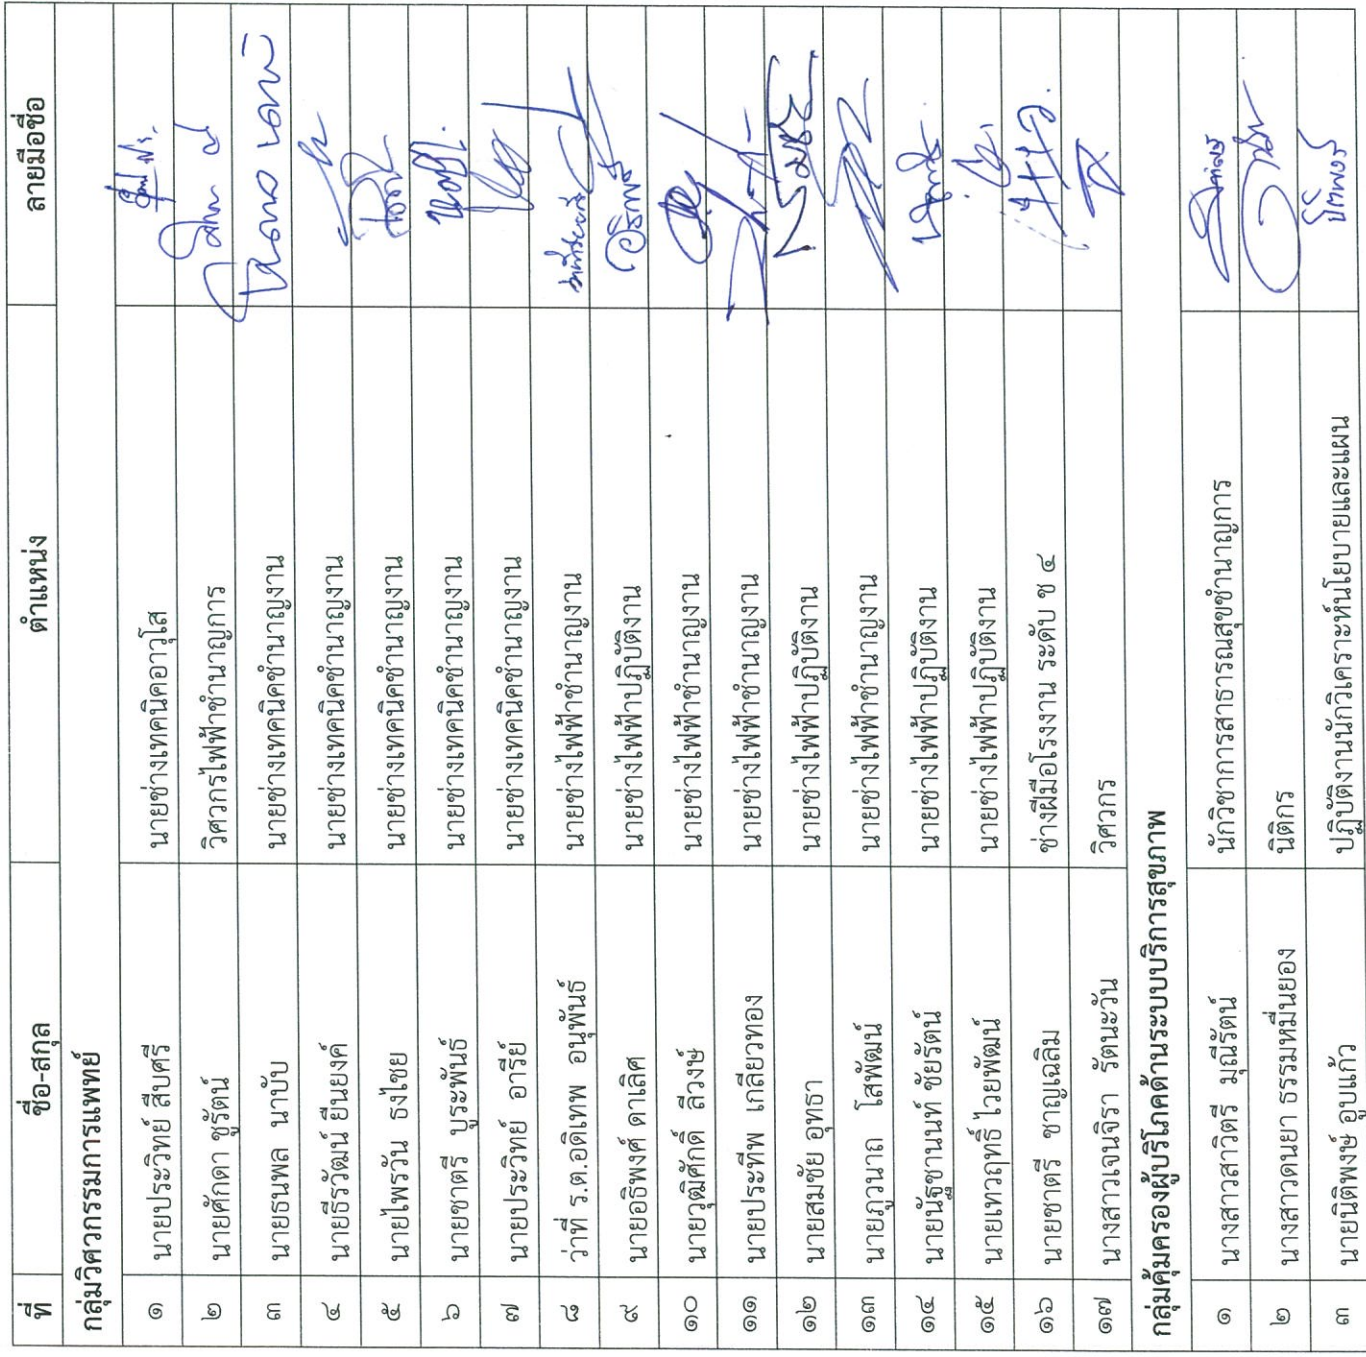 ที่ ชื่อ-สกุล ตำแหน่ง ลายมือชื่อ
กลุ่มวิศวกรรมการแพทย์
๑ นายประวิทย์ สืบศรี นายช่างเทคนิคอาวุโส
๒ นายศักดา ชูรัตน์ วิศวกรไฟฟ้าชำนาญการ
๓ นายธนพล นาบับ นายช่างเทคนิคชำนาญงาน
๔ นายธีรวัฒน์ ยืนยงค์ นายช่างเทคนิคชำนาญงาน
๕ นายไพรวัน ธงไชย นายช่างเทคนิคชำนาญงาน
๖ นายชาตรี บูระพันธ์ นายช่างเทคนิคชำนาญงาน
๗ นายประวิทย์ อารีย์ นายช่างเทคนิคชำนาญงาน
๘ ว่าที่ ร.ต.อดิเทพ อนุพันธ์ นายช่างไฟฟ้าชำนาญงาน
๙ นายอธิพงศ์ ดาเลิศ นายช่างไฟฟ้าปฏิบัติงาน
๑๐ นายวุฒิศักดิ์ สีวงษ์ นายช่างไฟฟ้าชำนาญงาน
๑๑ นายประทีพ เกลียวทอง นายช่างไฟฟ้าชำนาญงาน
๑๒ นายสมชัย อุทธา นายช่างไฟฟ้าปฏิบัติงาน
๑๓ นายภูวนาถ โสพัฒน์ นายช่างไฟฟ้าชำนาญงาน
๑๔ นายนัฐชานนท์ ชัยรัตน์ นายช่างไฟฟ้าปฏิบัติงาน
๑๕ นายเทวฤทธิ์ ไวยพัฒน์ นายช่างไฟฟ้าปฏิบัติงาน
๑๖ นายชาตรี ชาญเฉลิม ช่างฝีมือโรงงาน ระดับ ช ๔
๑๗ นางสาวเจนจิรา รัตนะวัน วิศวกร
กลุ่มคุ้มครองผู้บริโภคด้านระบบบริการสุขภาพ
๑ นางสาวสาวิตรี มุณีรัตน์ นักวิชาการสาธารณสุขชำนาญการ
๒ นางสาวดนยา ธรรมหมื่นยอง นิติกร
๓ นายนิติพงษ์ อูบแก้ว ปฏิบัติงานนักวิเคราะห์นโยบายและแผน